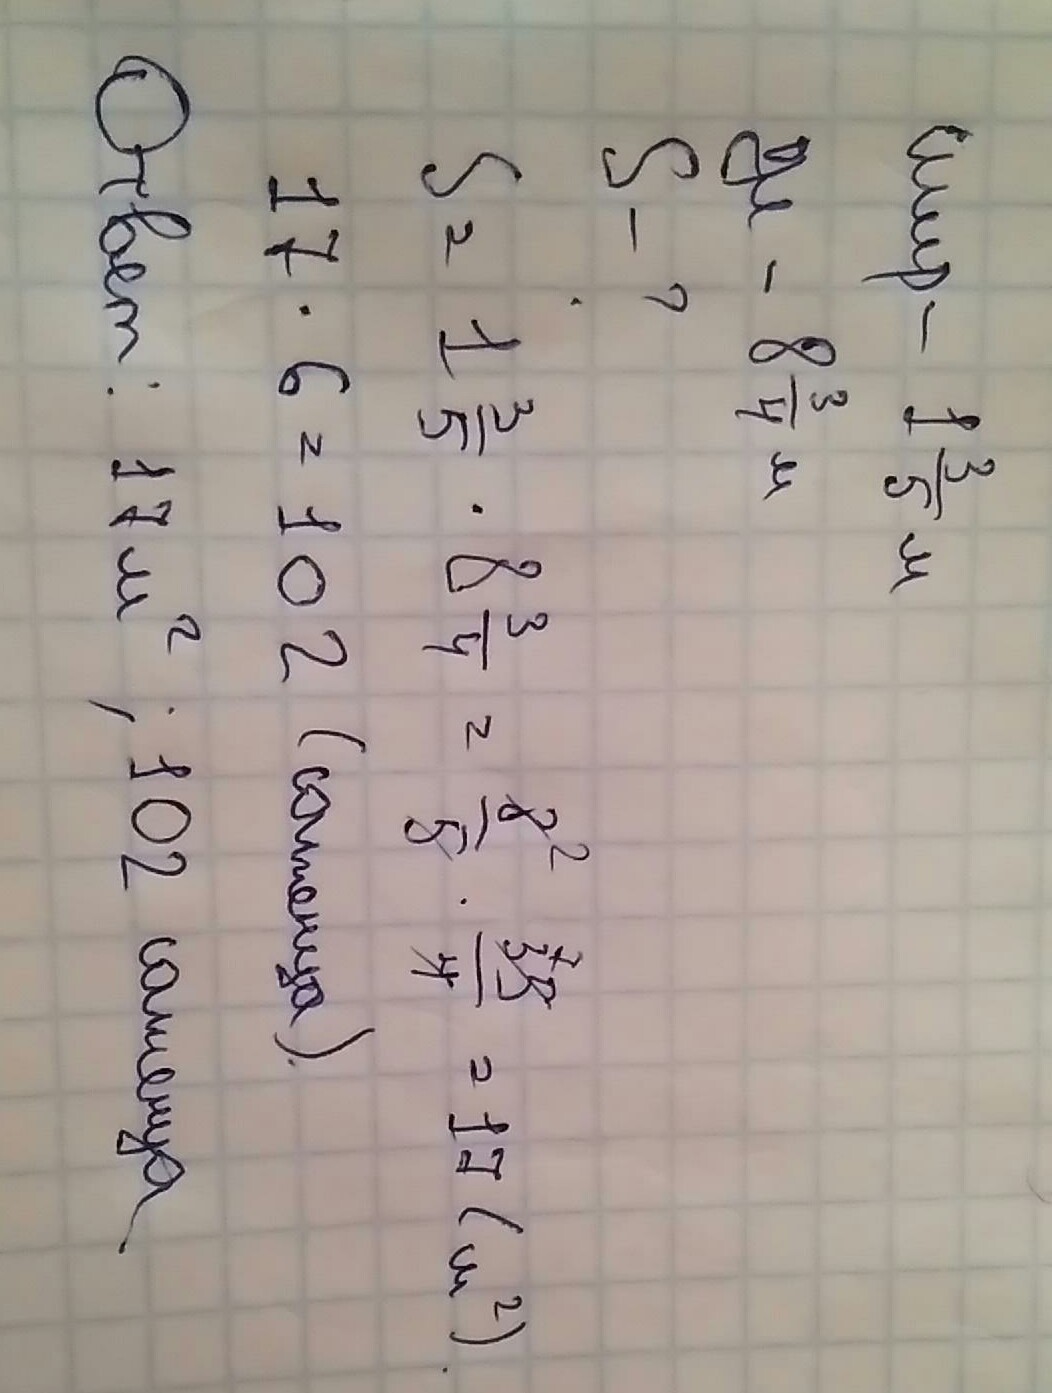 Шир - 1 3/5 м
Дл - 8 3/4 м
S - ?
S = 1 3/5 · 8 3/4 = 8²/5 · 35⁷/4 = 17 (м²).
17 · 6 = 102 (саженца).
Ответ: 17 м² ; 102 саженца